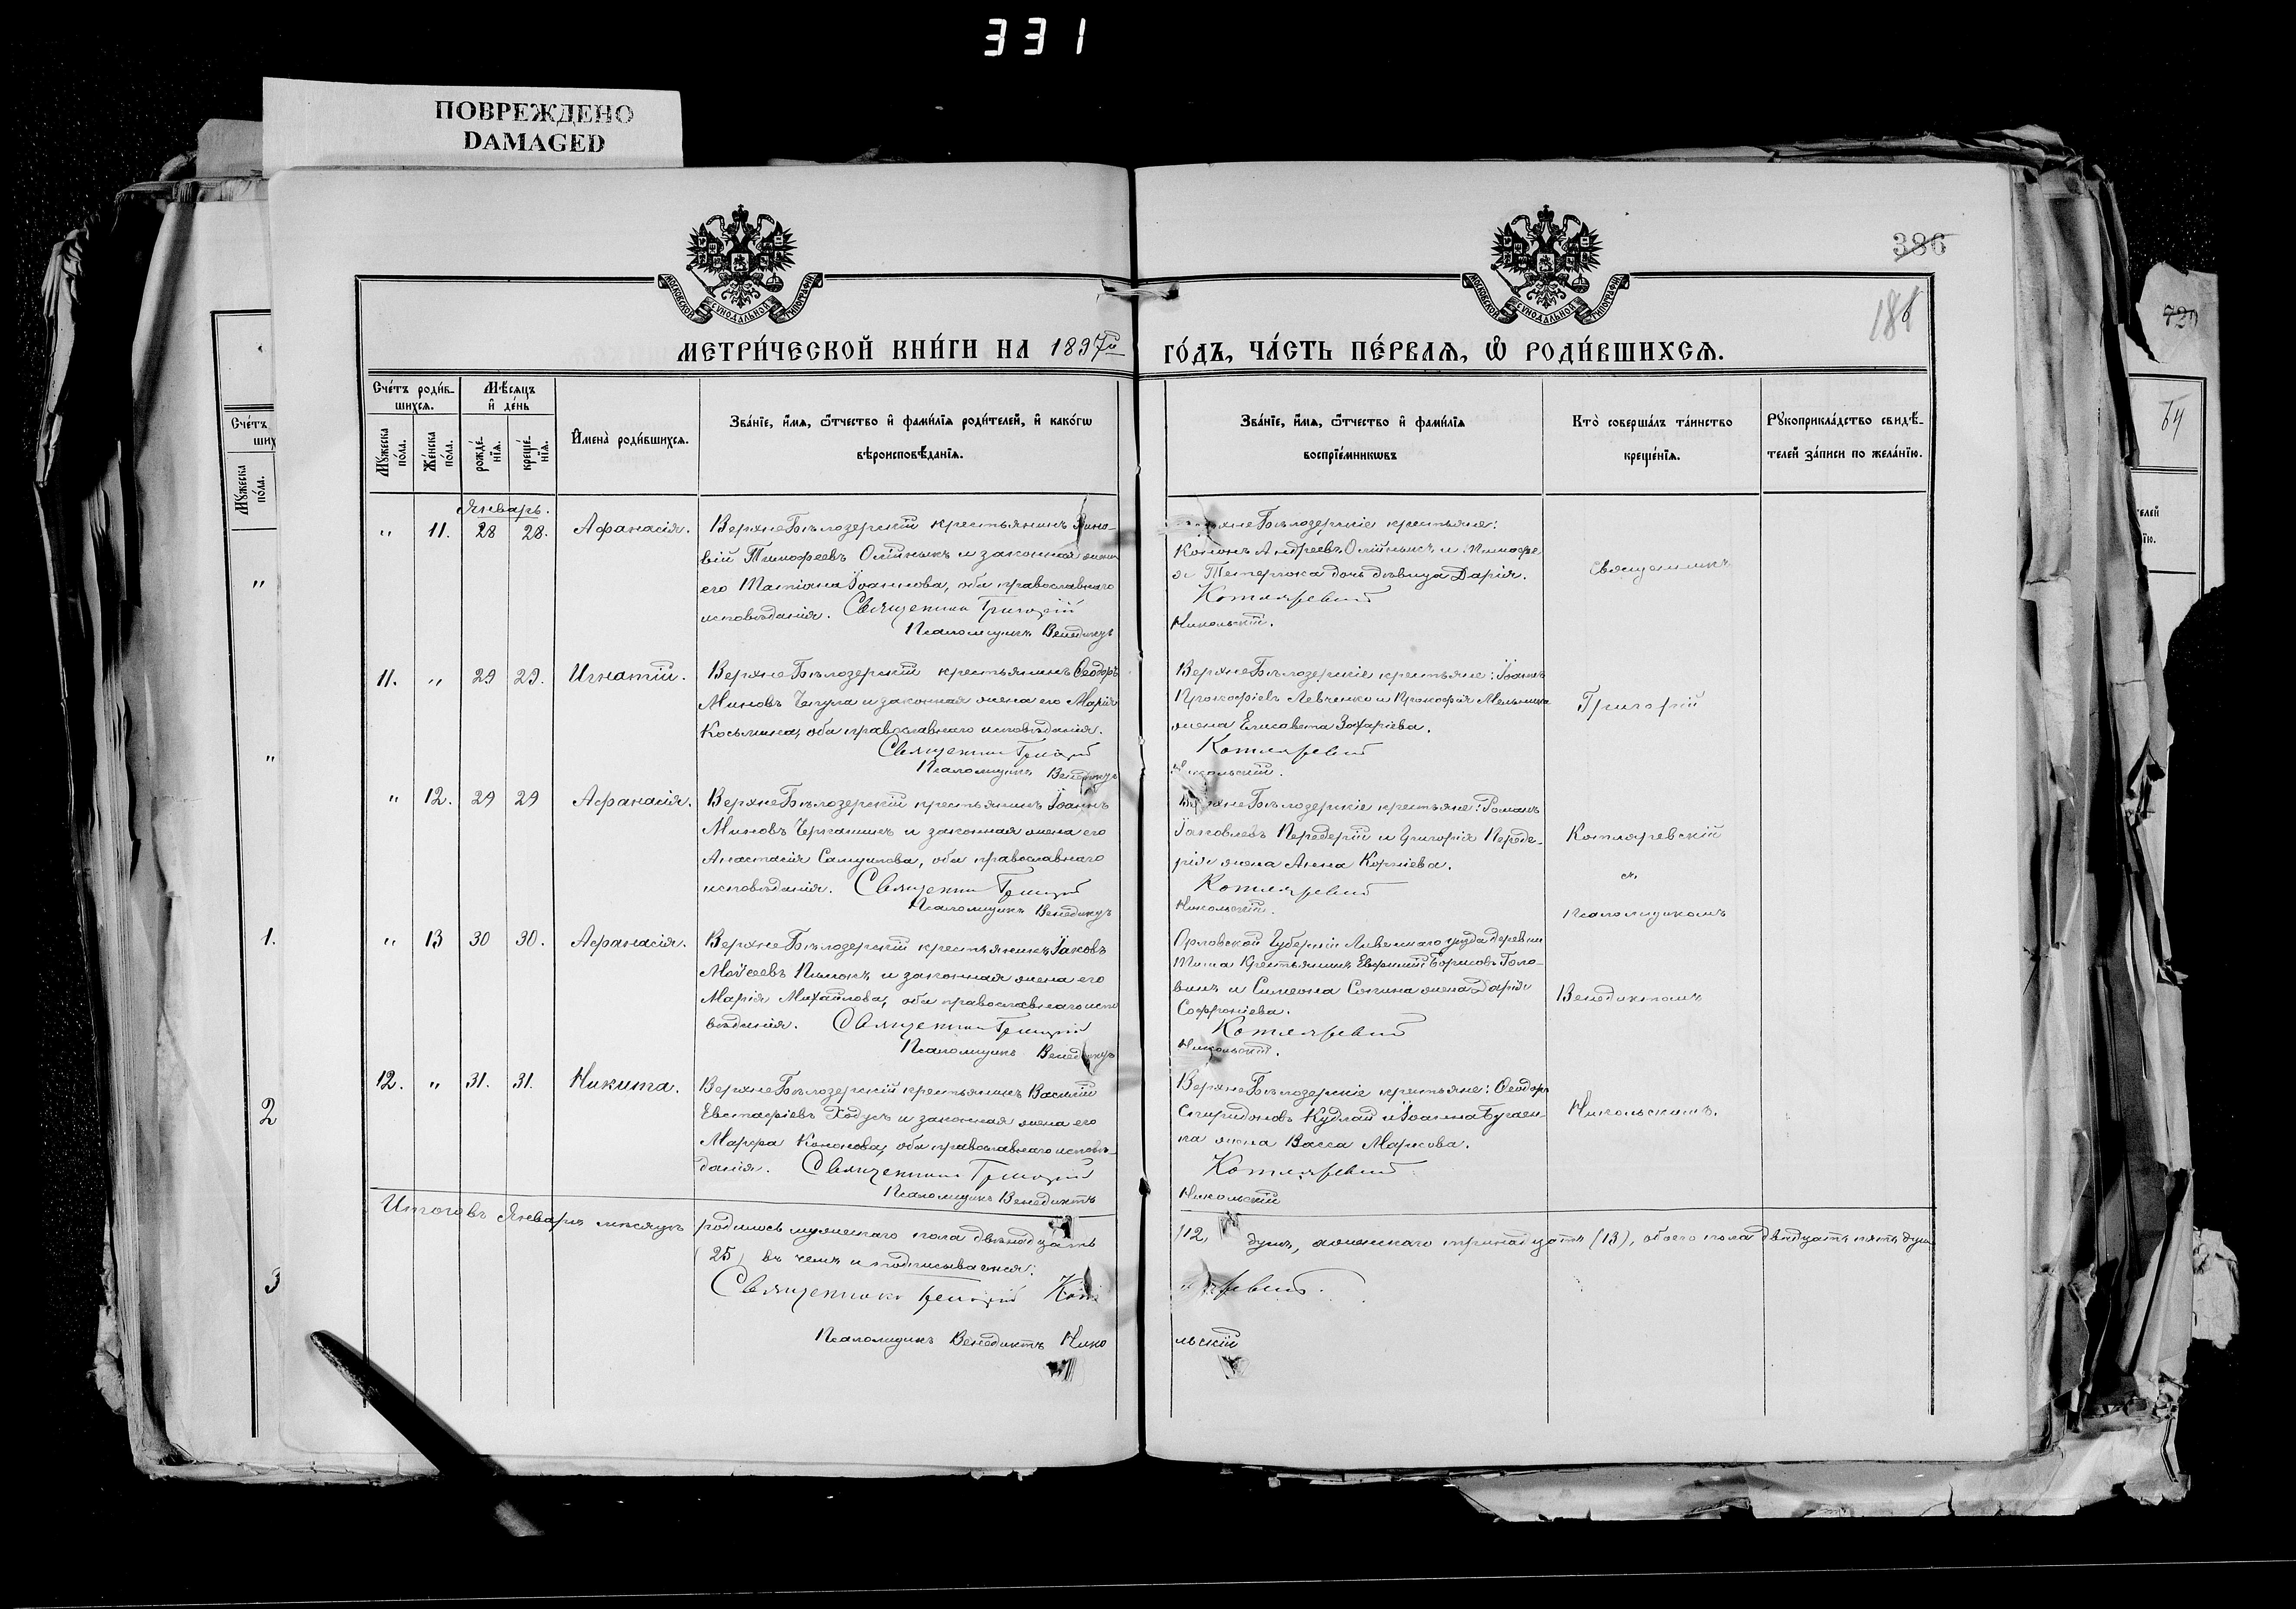 331
ПОВРЕЖДЕНО
DAMAGED
МОСКОВСКОЙ СѴНОДАЛЬНОЙ ТИПОГРАФІИ
МОСКОВСКОЙ СѴНОДАЛЬНОЙ ТИПОГРАФІИ
386
186
729
МЕТРИ́ЧЕСКОЙ КНИ́ГИ НА 1897й ГО́ДЪ, ЧА́СТЬ ПЕ́РВАѦ, Ѡ҆ РОДИ́ВШИХСѦ.
Сче́тъ роди́в-
шихсѧ.
Мѣ́сѧцъ
и҆ де́нь
Мꙋ́жеска
по́ла.
Же́нска
по́ла.
рожде́-
нїѧ.
креще́-
нїѧ.
И҆мена̀ роди́вшихсѧ.
Зва́нїе, и҆́мѧ, ѻ҆́тчество и҆ фами́лїѧ роди́телей, и҆ како́гѡ
вѣроисповѣ́данїѧ.
Зва́нїе, и҆́мѧ, ѻ҆́тчество и҆ фами́лїѧ
воспрїе́мникѡвъ
Кто̀ соверша́лъ та́инство
креще́нїѧ.
Рꙋкоприкла́дство свидѣ́-
телей за́писи по жела́нїю.
Январь.
" 11. 28 28. Афанасія.
ВерхнеБѣлозерскій крестьянинъ Зино-
вій Тимофеевъ Олійныкъ и законная жена
его Татіана Іоаннова, оба православнаго
исповѣданія. Священникъ Григорій
Псаломщикъ Венедиктъ
ВерхнеБѣлозерскіе крестьяне:
Кононъ Андреевъ Олійныкъ и Тимофе
я Тетерюка дочь дѣвица Дарія.
Котляревскій
Никольскій.
Священникъ
11. " 29 29. Игнатій.
ВерхнеБѣлозерскій крестьянинъ Ѳеодоръ
Миновъ и законная жена его Марія
Косьмина, оба православнаго исповѣданія.
Священникъ Григорій
Псаломщикъ Венедиктъ
ВерхнеБѣлозерскіе крестьяне: Іоаннъ
Прокофіевъ Левченко и Прокофія Мельника
жена Елисавета Захаріева.
Котляревскій
Никольскій.
Григорій
" 12. 29 29 Афанасія.
ВерхнеБѣлозерскій крестьянинъ Іоаннъ
Миновъ и законная жена его
Анастасія Самуилова, оба православнаго
исповѣданія. Священникъ Григорій
Псаломщикъ Венедиктъ
ВерхнеБѣлозерскіе крестьяне: Романъ
Іаковлевъ Передерій и Григорія Переде-
рія жена Анна Корніева.
Котляревскій
Никольскій.
Котляревскій
съ
Псаломщикомъ
" 13 30 30. Афанасія.
ВерхнеБѣлозерскій крестьянинъ Іаковъ
Моѵсеевъ и законная жена его
Марія Михайлова, оба православнаго испо
вѣданія. Священникъ Григорій
Псаломщикъ Венедиктъ
Орловской Губерніи Ливенскаго уѣзда деревни
крестьянинъ Евфимій Борисовъ Голо-
винъ и Симеона жена Дарія
Софроніева.
Котляревскій
Никольскій.
Венедиктомъ
12. " 31. 31. Никита.
ВерхнеБѣлозерскій крестьянинъ Василій
Евстафіевъ Ходусъ и законная жена его
Марфа Кононова, оба православнаго исповѣ-
данія. Священникъ Григорій
Псаломщикъ Венедиктъ
ВерхнеБѣлозерскіе крестьяне: Ѳеодоръ
Спиридоновъ Кудлай и Іоанна Бугаен-
ка жена Васса Маркова.
Котляревскій
Никольскій
Никольскимъ.
Итого въ Январѣ мѣсяцѣ родилось мужескаго пола двѣнадцать (12) душъ, женскаго тринадцать (13), обоего пола двадцать пять душъ
(25) въ чемъ и подписываемся:
Священникъ Григорій Котляревскій.
Псаломщикъ Венедиктъ Никольскій